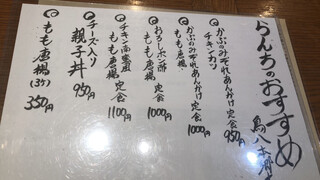 らんちのおすすめ
かぶのみぞれあんかけ定食
チキンカツ 950円
かぶのみぞれあんかけ定食
もも唐揚 1000円
おろしポン酢定食
もも唐揚 1000円
チキン南蛮風定食
もも唐揚 1100円
チーズ入り
親子丼 950円
もも唐揚(3ケ)
350円